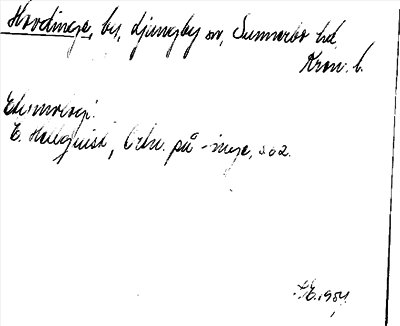 Hovdinge, by, Ljungby sn, Sunnerbo hd,
Kron. l.
Etymologi:
E. Hellquist, Ortn. på -inge, s 62.
1904